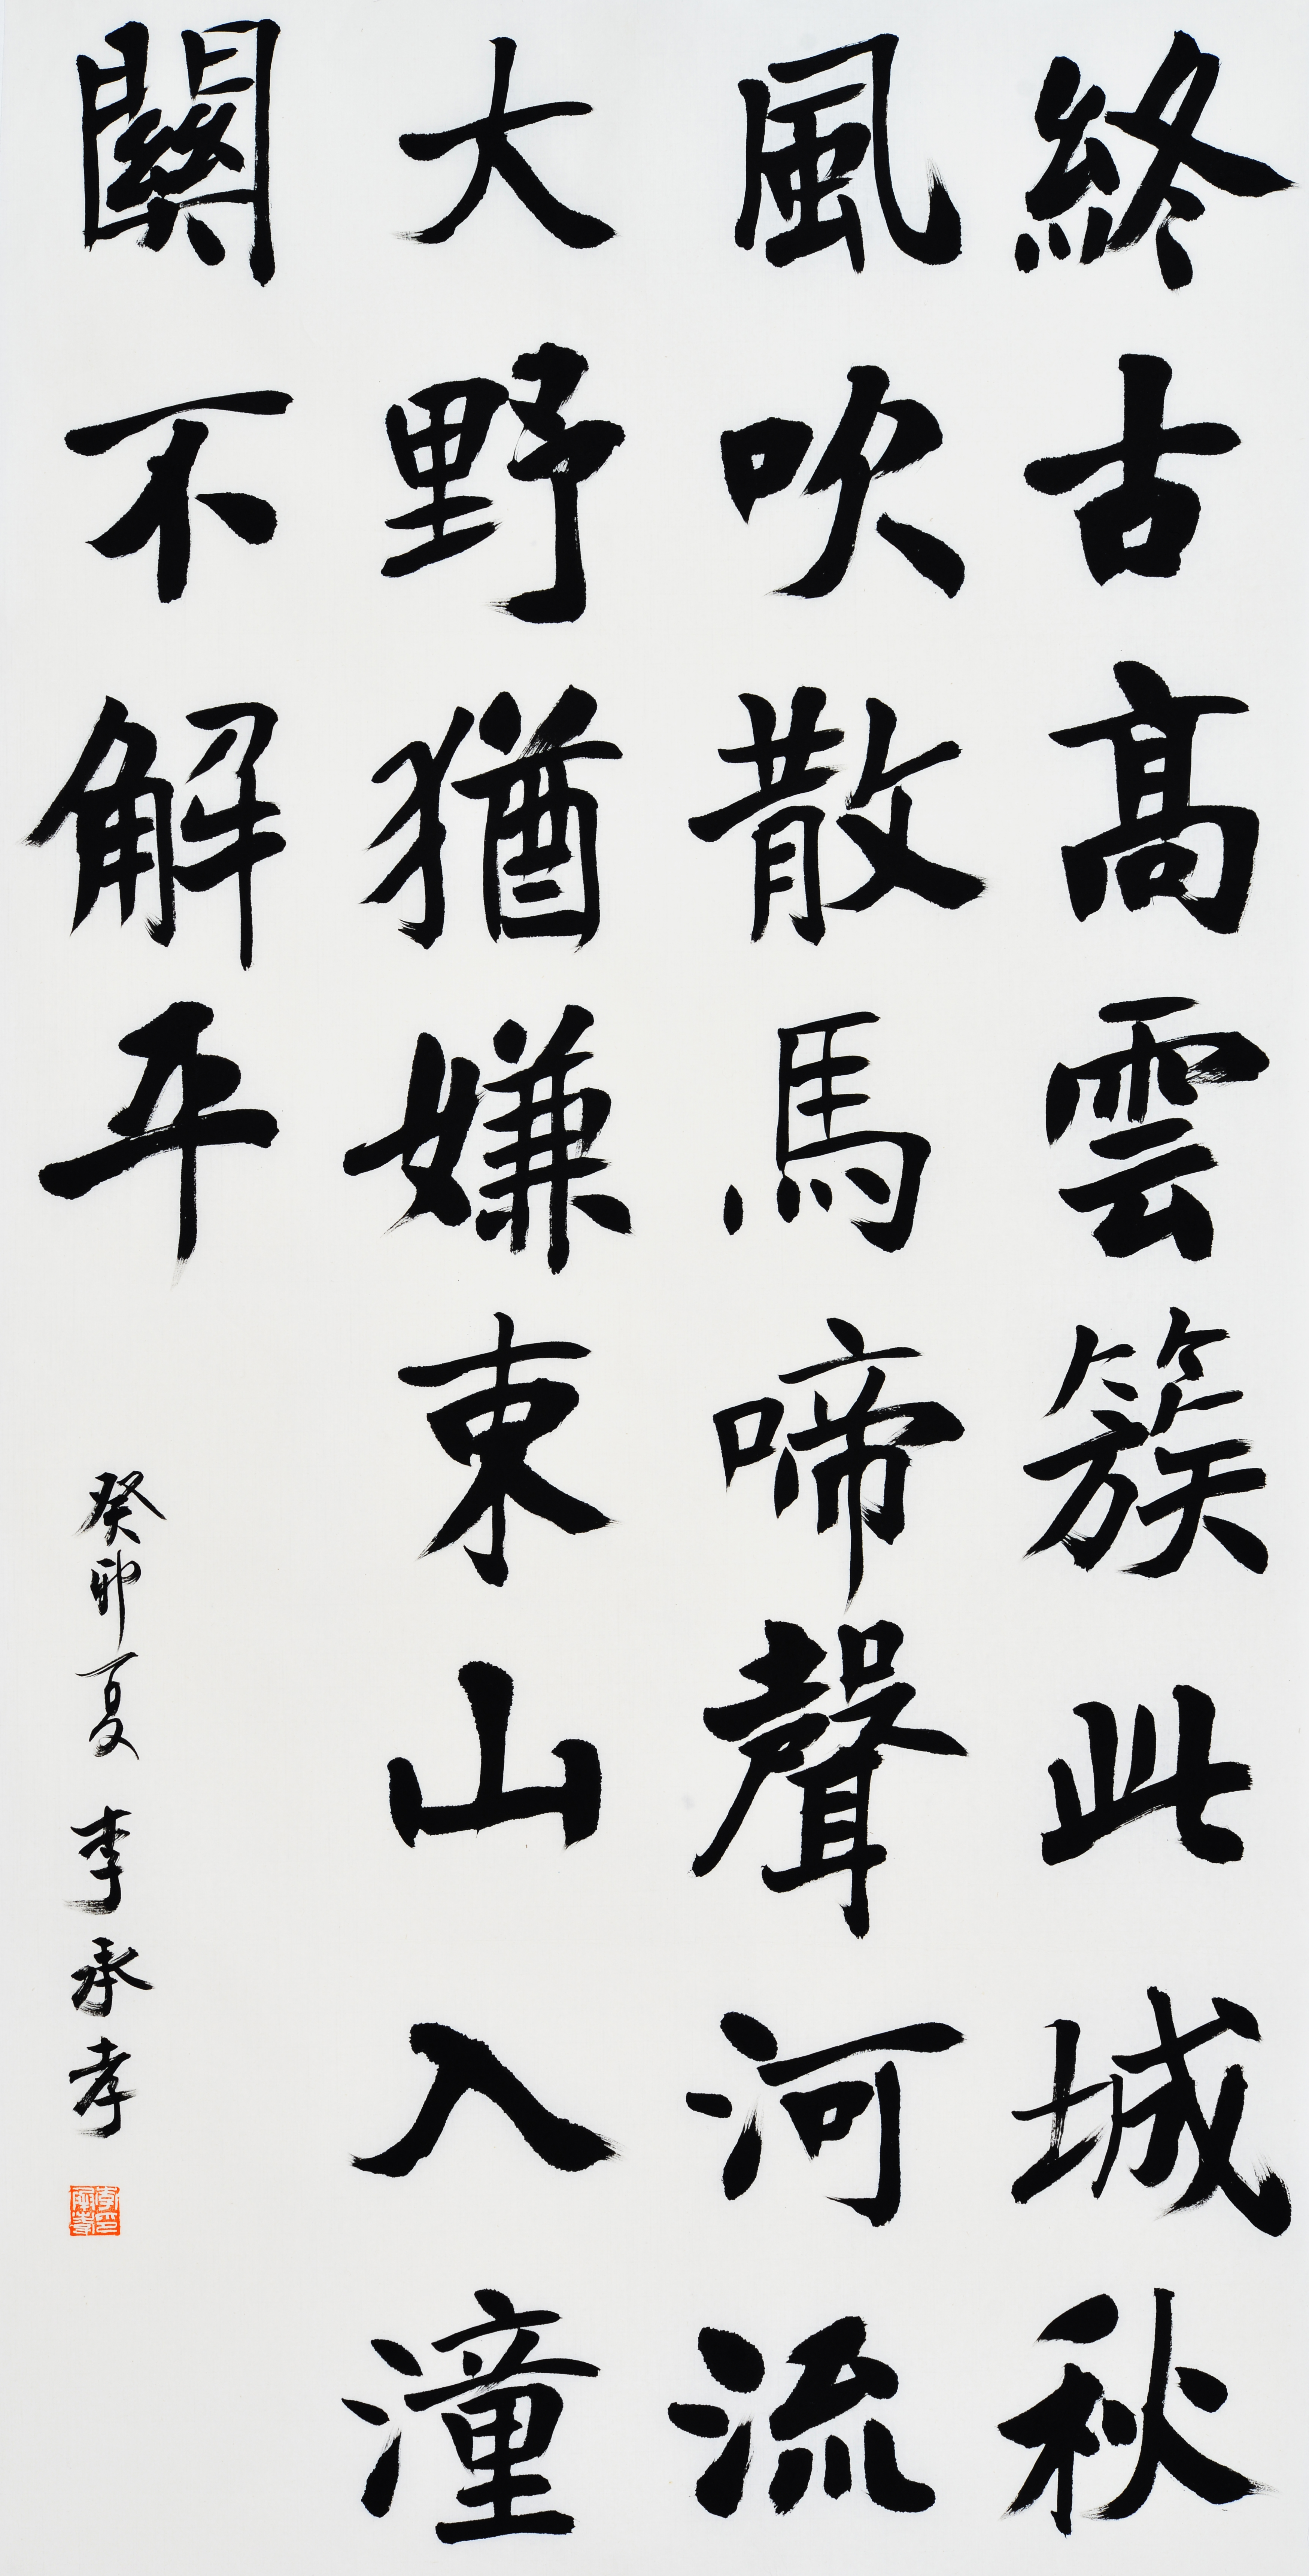 終古高雲簇此城秋
風吹散馬啼聲河流
大野猶嫌束山入潼
關不解平
癸卯夏 李承孝
李印承孝